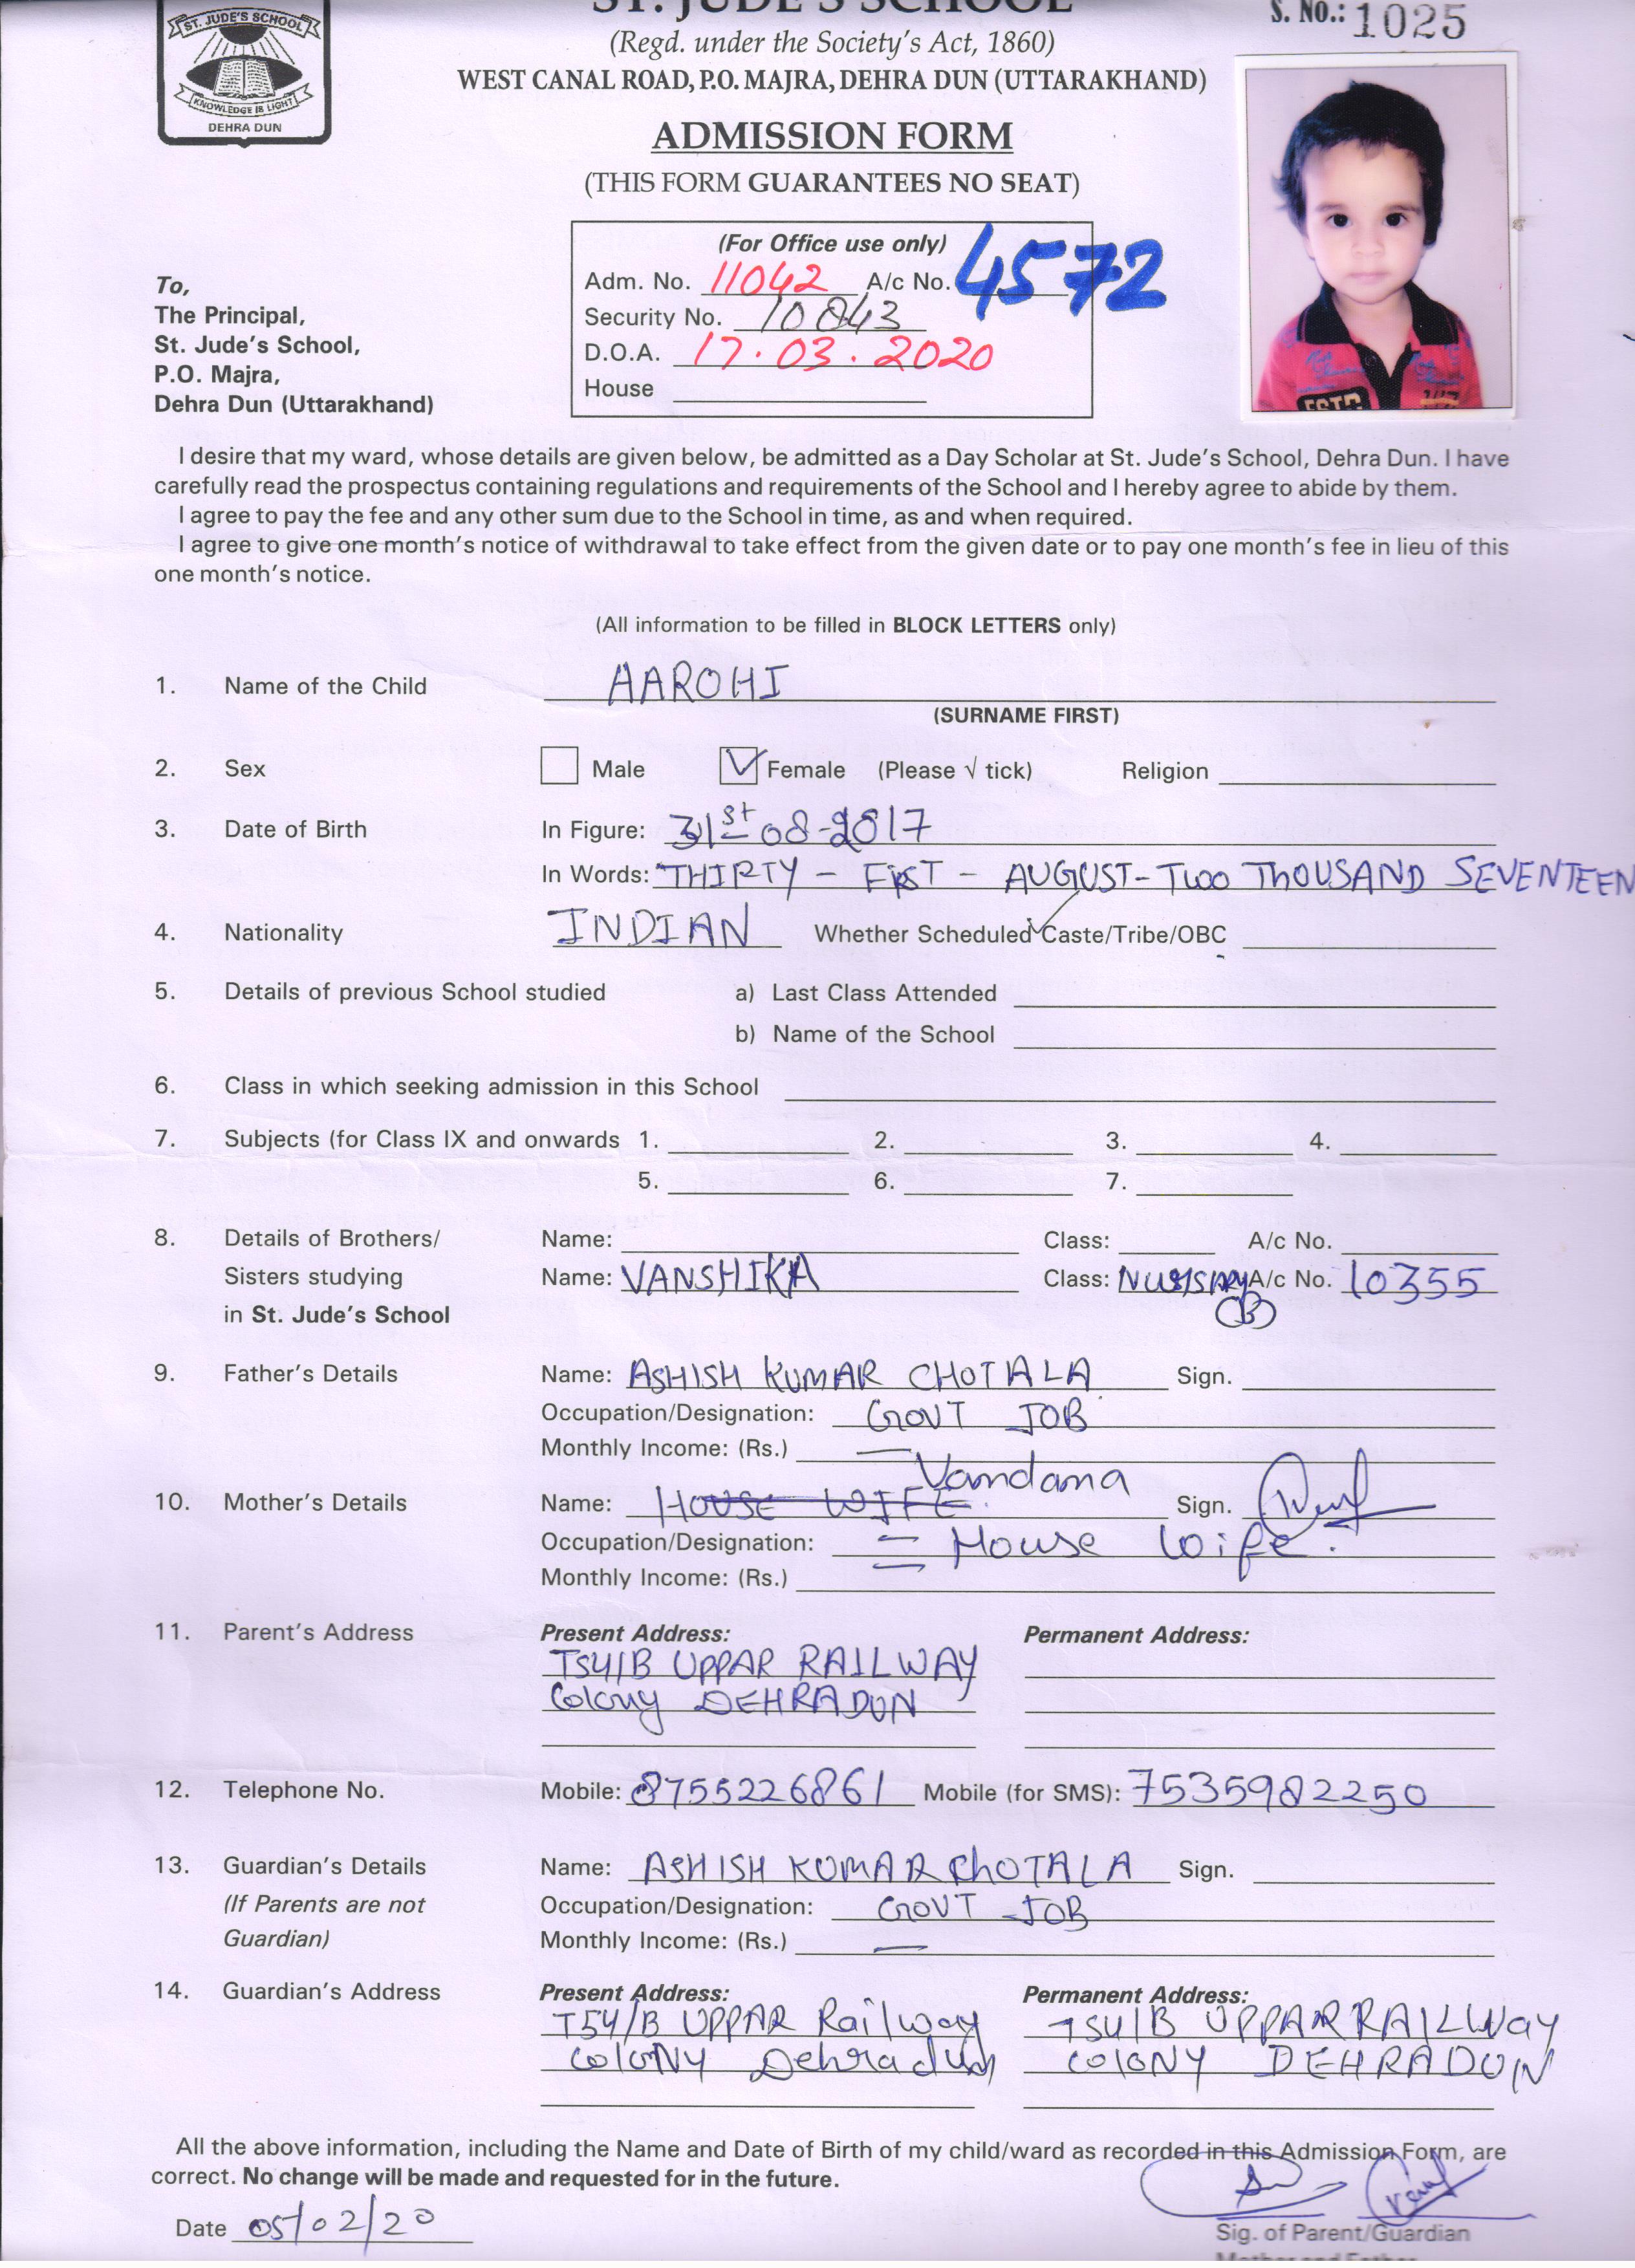 ST. JUDE'S SCHOOL
S. No.: 1025
ST. JUDE'S SCHOOL
KNOWLEDGE IS LIGHT
DEHRA DUN
(Regd. under the Society's Act, 1860)
WEST CANAL ROAD, P.O. MAJRA, DEHRA DUN (UTTARAKHAND)
ADMISSION FORM
(THIS FORM GUARANTEES NO SEAT)
(For Office use only)
Adm. No. 11042 A/c No. 4572
Security No. 10843
D.O.A. 17.03.2020
House
To,
The Principal,
St. Jude's School,
P.O. Majra,
Dehra Dun (Uttarakhand)
ESTC
I desire that my ward, whose details are given below, be admitted as a Day Scholar at St. Jude's School, Dehra Dun. I have
carefully read the prospectus containing regulations and requirements of the School and I hereby agree to abide by them.
I agree to pay the fee and any other sum due to the School in time, as and when required.
I agree to give one month's notice of withdrawal to take effect from the given date or to pay one month's fee in lieu of this
one month's notice.
(All information to be filled in BLOCK LETTERS only)
1. Name of the Child AAROHI
(SURNAME FIRST)
2. Sex Male Female (Please √ tick) Religion
3. Date of Birth In Figure: 31st 08-2017
In Words: THIRTY - FIRST - AUGUST - Two THOUSAND SEVENTEEN
4. Nationality INDIAN Whether Scheduled Caste/Tribe/OBC
5. Details of previous School studied a) Last Class Attended
b) Name of the School
6. Class in which seeking admission in this School
7. Subjects (for Class IX and onwards 1. 2. 3. 4.
5. 6. 7.
8. Details of Brothers/ Name: Class: A/c No.
Sisters studying Name: VANSHIKA Class: A/c No. 10355
in St. Jude's School (B)
9. Father's Details Name: ASHISH KUMAR CHOTALA Sign.
Occupation/Designation: GOVT JOB
Monthly Income: (Rs.) —
10. Mother's Details Name: HOUSE WIFE Vandana Sign.
Occupation/Designation: = House Wife.
Monthly Income: (Rs.)
11. Parent's Address Present Address: Permanent Address:
T54/B UPPAR RAILWAY
Colony DEHRADUN
12. Telephone No. Mobile: 8755226861 Mobile (for SMS): 7535982250
13. Guardian's Details Name: ASHISH KUMAR ChOTALA Sign.
(If Parents are not Occupation/Designation: GOVT JOB
Guardian) Monthly Income: (Rs.) —
14. Guardian's Address Present Address: Permanent Address:
T54/B UPPAR Railway T54/B UPPAR RAILWay
COLONY Dehradun COLONY DEHRADUN
All the above information, including the Name and Date of Birth of my child/ward as recorded in this Admission Form, are
correct. No change will be made and requested for in the future.
Date 05/02/20
Sig. of Parent/Guardian
Mother and Father